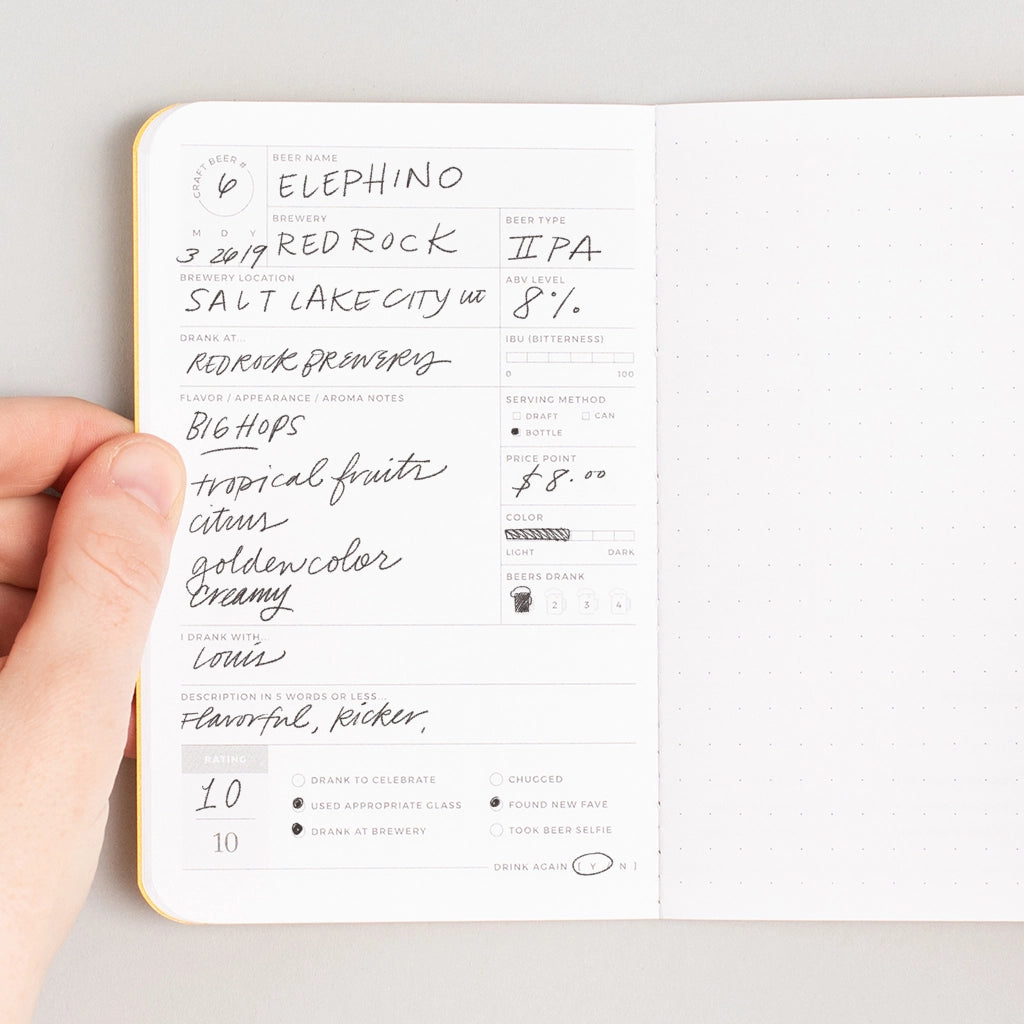 CRAFT BEER #
6
M D Y
3 26 19
BEER NAME
ELEPHINO
BREWERY
RED ROCK
BEER TYPE
IIPA
BREWERY LOCATION
SALT LAKE CITY UT
ABV LEVEL
8%
DRANK AT...
REDROCK BREWERY
IBU (BITTERNESS)
0 100
FLAVOR / APPEARANCE / AROMA NOTES
BIG HOPS
tropical fruits
citrus
golden color
creamy
SERVING METHOD
DRAFT CAN
BOTTLE
PRICE POINT
$8.00
COLOR
LIGHT DARK
BEERS DRANK
2 3 4
I DRANK WITH...
Louis
DESCRIPTION IN 5 WORDS OR LESS...
Flavorful, kicker,
RATING
10
10
DRANK TO CELEBRATE
USED APPROPRIATE GLASS
DRANK AT BREWERY
CHUGGED
FOUND NEW FAVE
TOOK BEER SELFIE
DRINK AGAIN [ Y / N ]